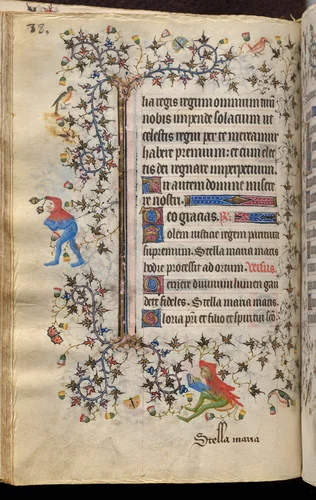 38.
lia regis regum omnium tuu
nobis impende solacium ut
celestis regni per te mereamur
habere premium: et cum elec
tis dei regnare imperpetuum.
Tu autem domine misere
re nostri.
Deo gracias. R.
Solem iusticie regem paritura
supremum. Stella maria maris
hodie processit ad ortum. Versus.
Cernere divinum lumen gau
dete fideles. Stella maria maris
Gloria pri et filio et spiritui sco.
Stella maria